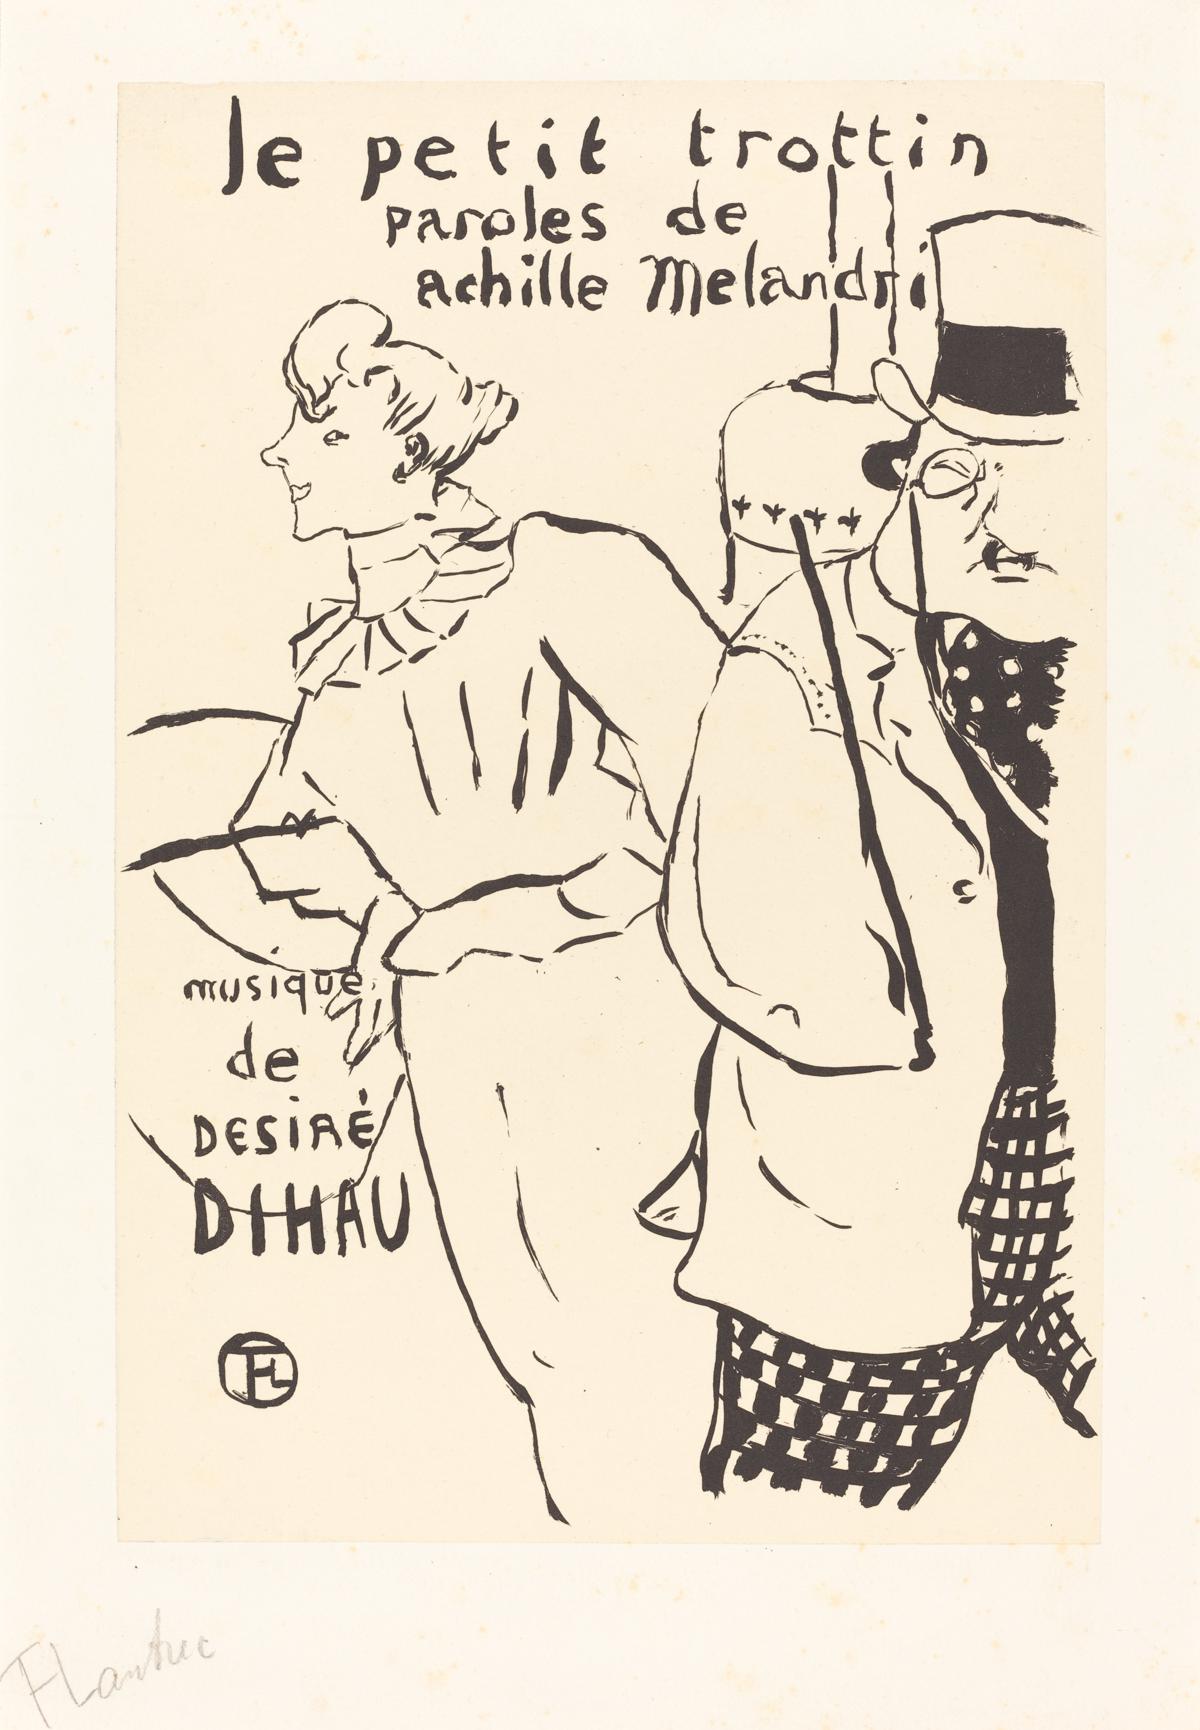 le petit trottin
paroles de
achille Melandri
musique
de
DESIRÉ
DIHAU
HTL
TLautrec